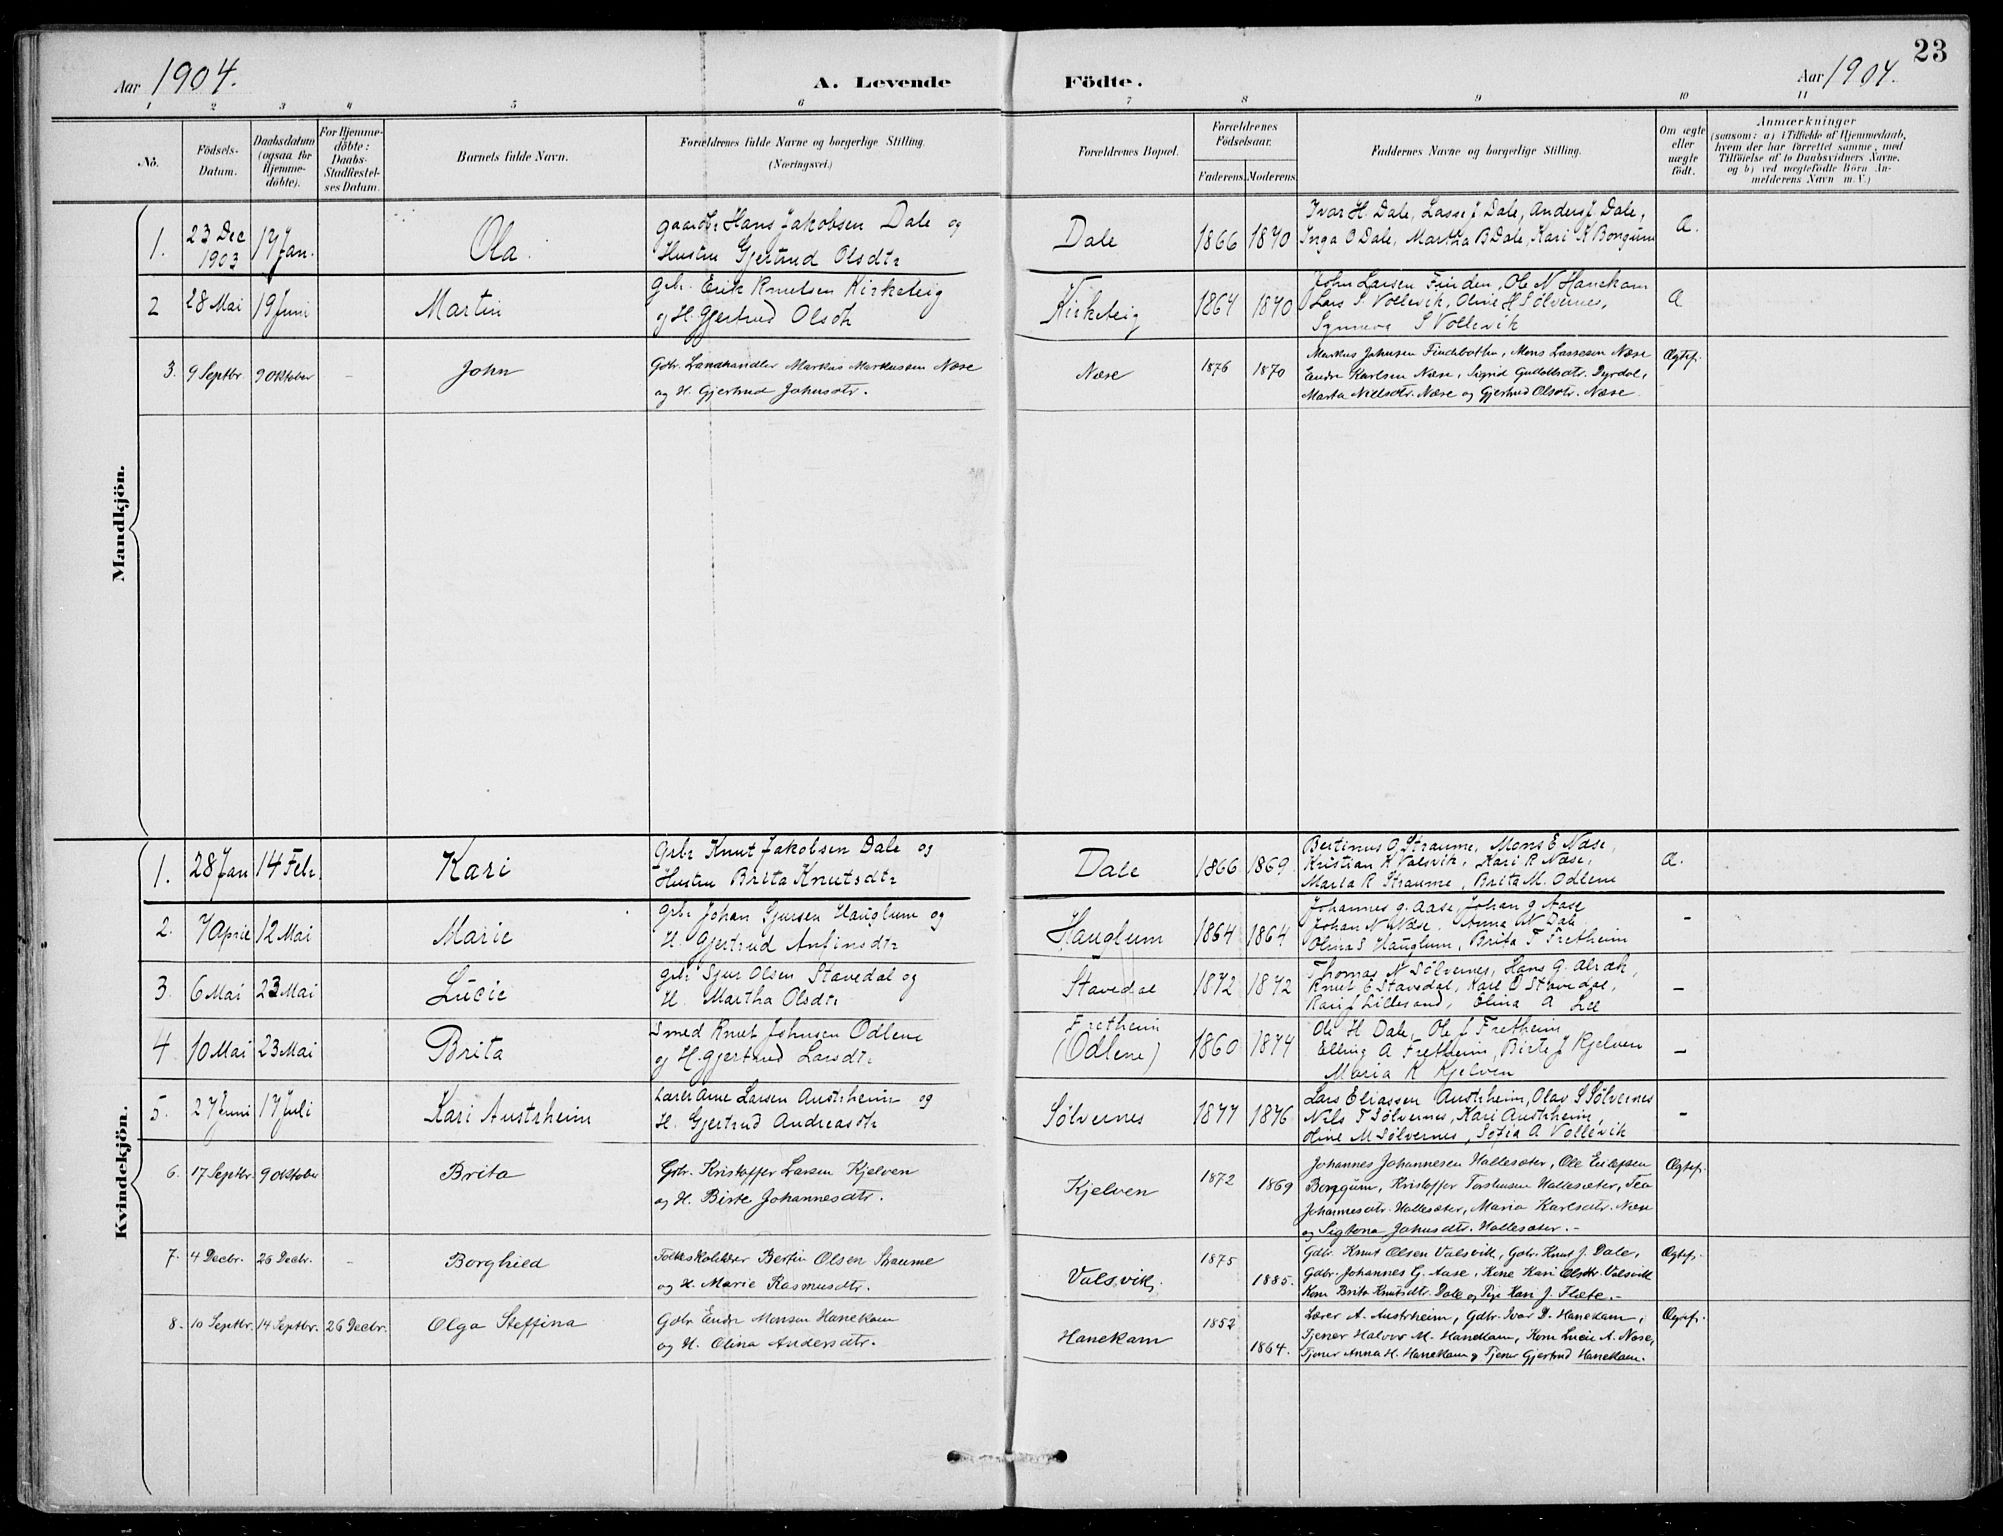 23
Aar 1904.
A. Levende Födte.
Aar 1904.
1 2 3 4 5 6 7 8 9 10 11
No.
Födsels-
Datum.
Daabsdatum
(ogsaa for
Hjemme-
döbte).
For Hjemme-
döbte:
Daabs-
Stadfæstel-
ses Datum.
Barnets fulde Navn.
Forældrenes fulde Navne og borgerlige Stilling.
(Næringsvei.)
Forældrenes Bopæl.
Forældrenes
Födselsaar.
Faderens. Moderens.
Faddernes Navne og borgerlige Stilling.
Om ægte
eller
uægte
födt.
Anmærkninger
(saasom: a) i Tilfælde af Hjemmedaab,
hvem der har forrettet samme, med
Tilföielse af to Daabsvidners Navne,
og b) ved uægtefödte Börn An-
melderens Navn m. V.)
Mandkjön.
1. 23 Dec 1903 17 Jan. Ola
gaardbr Hans Jakobsen Dale og
Hustru Gjertrud Olsdtr
Dale 1866 1870
Ivar H. Dale, Lasse J Dale, Anders J. Dale,
Inga O Dale, Martha B Dale, Kari K Bongum
a.
2 28 Mai 19 Juni Martin
Gbr. Erik Knutsen Kirketeig
og H. Gjertrud Olsdtr
Kirketeig 1864 1870
John Larsen Finden, Ole N Hanekam
Lars S. Vollevik, Oline H Sølvernes,
Synneva S Vollevik
a
3. 9 Septbr. 9 Oktober - John
Gdbr. Landhandler Markus Markussen Næse
og H. Gjertrud Johnsdtr.
Næse 1876 1870
Markus Johnsen Findebotten, Mons Lassesen Næse
Endre Karlsen Næse, Sigrid Gudolksdtr. Dyrdal,
Marta Nillsdtr. Næse og Gjertrud Olsdtr. Næse.
Ægtef.
Kvindekjön.
1. 28 Jan 14 Febr Kari
Grbr Knut Jakobsen Dale og
Hustru Brita Knutsdtr
Dale 1866 1869
Bertinus O Straume, Mons E Næse,
Kristian K Valsvik, Kari R Næse,
Maria R Straume, Brita M. Odlene
a.
2. 7 April 12 Mai Marie
Grbr Johan Sjursen Hauglum og
H. Gjertrud Anfinsdtr
Hauglum 1864 1864
Johannes G. Aase, Johan G Aase
Johan N Næse, Anna N Dale
Olina S Hauglum, Brita T Fretheim
-
3. 6 Mai 23 Mai Lucie
Grbr Sjur Olsen Stavedal og
H. Martha Olsdtr
Stavedal 1872 1872
Thomas N Sølvernes, Hans G. Alræk,
Knut E Stavedal, Karl O Stavedal,
Kari J Lillesand, Elina A Lee
-
4 10 Mai 23 Mai Brita
Smed Knut Johnsen Odlene
og H. Gjertrud Larsdtr
Fretheim
(Odlene) 1860 1874
Ole H Dale, Ole J Fretheim
Elling A Fretheim, Birte J Kjelven
Maria K Kjelven
-
5. 27 Juni 17 Juli Kari Austrheim
Lærer Arne Larsen Austrheim og
H. Gjertrud Andreasdtr
Sølvernes 1877 1876
Lars Eliassen Austrheim, Olav S Sølvernes
Nils T Sølvernes, Kari Austrheim,
Oline M Sølvernes, Sofia A Vollevik
-
6. 17 Septbr. 9 Oktober Brita
Gbr. Kristoffer Larsen Kjelven
og H. Birte Johannesdtr.
Kjelven 1872 1869
Johannes Johannesen Hallesæter, Ole Eriksen
Bongum, Kristoffer Torstensen Hallesæter, Tea
Johannesdtr. Hallesæter, Maria Karlsdtr. Næse
og Sigtona Johnsdtr. Hallesæter.-
Ægtef.
7. 4 Decbr. 26 Decbr. - Borghild
Folkeskolelærer Bertin Olsen Straume
og H. Marie Rasmusdtr.
Valsvik. 1875 1885.
Gdbr. Knut Olsen Valsvik, Gdbr. Knut J. Dale,
Gdbr. Johannes G. Aase, Kone Kari Olsdtr. Valsvik
Kone Brita Knutsdtr. Dale og Pige Kari J. Flete.-
Ægtef.
8. 10 Septbr. 14 Septbr. 26 Decbr. Olga Steffina
Gdbr Endre Monsen Hanekam
og H. Olina Andersdtr.
Hanekam 1852 1864.
Lærer A. Austrheim, Gdbr. Ivar D. Hanekam,
Tjener Halvor M. Hanekam, Kone Lucie A. Næse,
Tjener Anna H. Hanekam og Tjener Gjertrud Hanekam.
Ægtef.